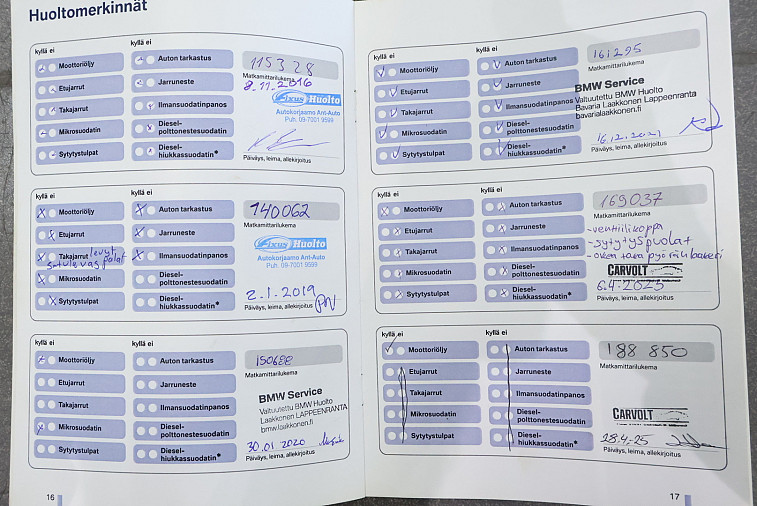 Huoltomerkinnät
kyllä ei
kyllä ei
Moottoriöljy
Auton tarkastus
115328
Matkamittarilukema
Etujarrut
Jarruneste
8.11.2016
Takajarrut
Ilmansuodatinpanos
Fixus Huolto
Autokorjaamo Ant-Auto
Puh. 09-7001 9599
Mikrosuodatin
Diesel-
polttonestesuodatin
Sytytystulpat
Diesel-
hiukkassuodatin*
Päiväys, leima, allekirjoitus
kyllä ei
kyllä ei
Moottoriöljy
Auton tarkastus
140062
Matkamittarilukema
Etujarrut
Jarruneste
Takajarrut
levyt,
palat
Ilmansuodatinpanos
Fixus Huolto
Autokorjaamo Ant-Auto
Puh. 09-7001 9599
Mikrosuodatin
Diesel-
polttonestesuodatin
Sytytystulpat
Diesel-
hiukkassuodatin*
2.1.2019
Päiväys, leima, allekirjoitus
kyllä ei
kyllä ei
Moottoriöljy
Auton tarkastus
150688
Matkamittarilukema
Etujarrut
Jarruneste
Takajarrut
Ilmansuodatinpanos
BMW Service
Valtuutettu BMW Huolto
Laakkonen LAPPEENRANTA
bmw.laakkonen.fi
Mikrosuodatin
Diesel-
polttonestesuodatin
Sytytystulpat
Diesel-
hiukkassuodatin*
30.01 2020
Päiväys, leima, allekirjoitus
16
kyllä ei
kyllä ei
Moottoriöljy
Auton tarkastus
161295
Matkamittarilukema
Etujarrut
Jarruneste
Takajarrut
Ilmansuodatinpanos
BMW Service
Valtuutettu BMW Huolto
Bavaria Laakkonen Lappeenranta
bavarialaakkonen.fi
Mikrosuodatin
Diesel-
polttonestesuodatin
Sytytystulpat
Diesel-
hiukkassuodatin*
16.12.2021
Päiväys, leima, allekirjoitus
kyllä ei
kyllä ei
Moottoriöljy
Auton tarkastus
169037
Matkamittarilukema
Etujarrut
Jarruneste
-venttiilikoppa
-sytytyspuolat
Takajarrut
Ilmansuodatinpanos
-oikea taka pyörän laakeri
Mikrosuodatin
Diesel-
polttonestesuodatin
CARVOLT
Sytytystulpat
Diesel-
hiukkassuodatin*
6.4.2023
Päiväys, leima, allekirjoitus
kyllä ei
kyllä ei
Moottoriöljy
Auton tarkastus
188 850
Matkamittarilukema
Etujarrut
Jarruneste
Takajarrut
Ilmansuodatinpanos
Mikrosuodatin
Diesel-
polttonestesuodatin
CARVOLT
Sytytystulpat
Diesel-
hiukkassuodatin*
28.4.-25
Päiväys, leima, allekirjoitus
17